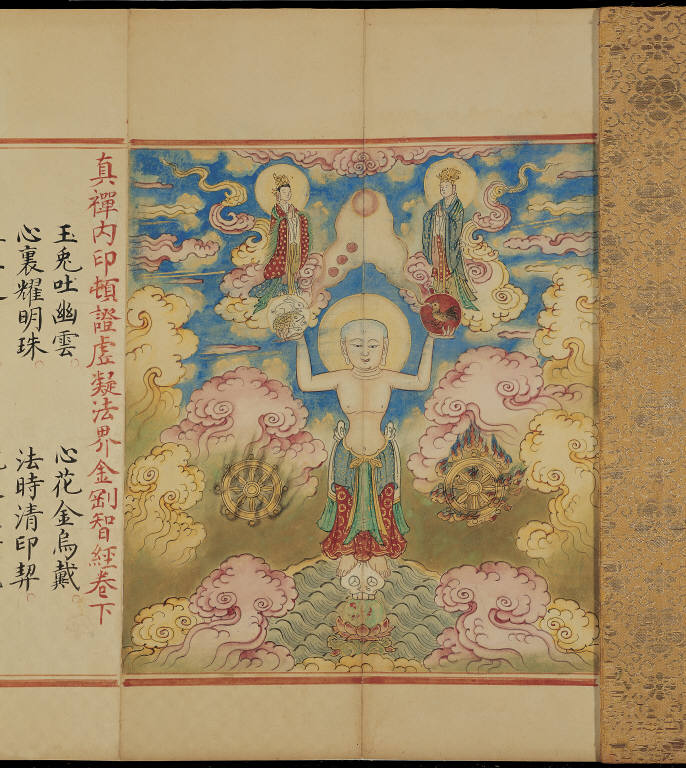 真禪內印頓證虛凝法界金剛智經卷下
玉兎吐幽雲　心花金烏戴
心裏耀明珠　法時清印契